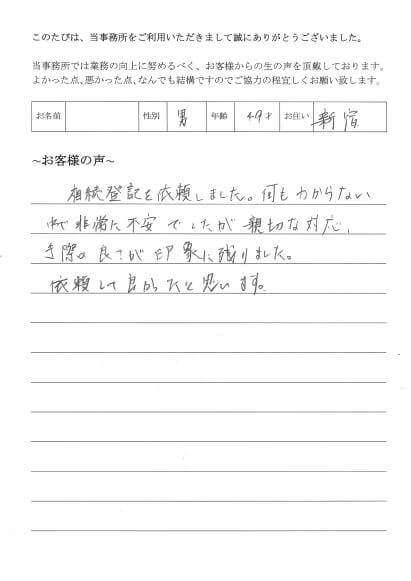 このたびは、当事務所をご利用いただきまして誠にありがとうございました。
当事務所では業務の向上に努めるべく、お客様からの生の声を頂戴しております。
よかった点、悪かった点、なんでも結構ですのでご協力の程宜しくお願い致します。
お名前 性別 男 年齢 49才 お住い 新宿
~お客様の声~
相続登記を依頼しました。何もわからない
中で非常に不安でしたが親切な対応、
手際の良さが印象に残りました。
依頼して良かったと思います。